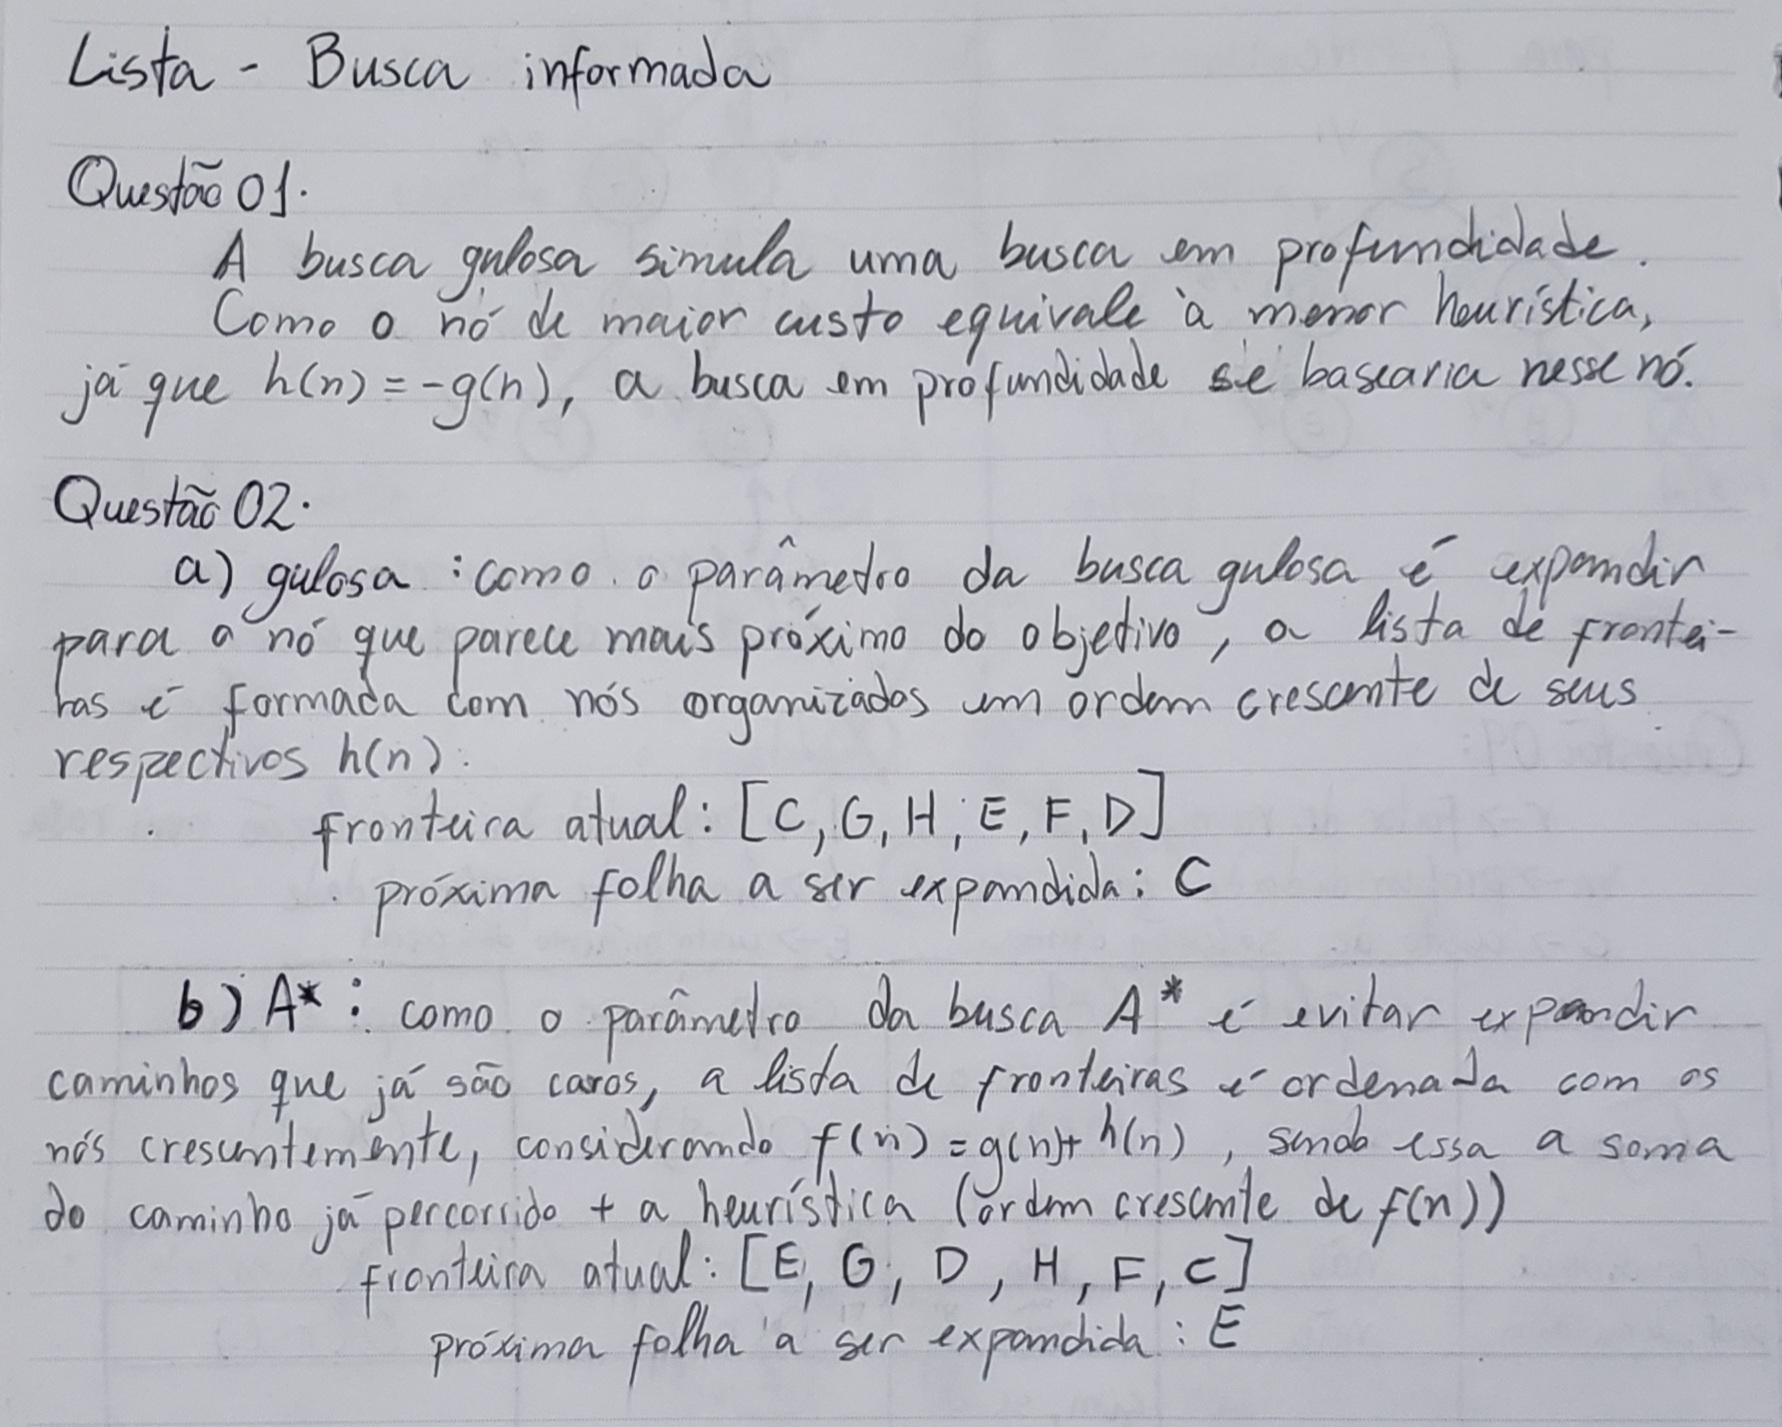 Lista - Busca informada
Questão 01.
A busca gulosa simula uma busca em profundidade.
Como o nó de maior custo equivale à menor heurística,
já que h(n) = -g(n), a busca em profundidade se basearia nesse nó.
Questão 02.
a) gulosa : como o parâmetro da busca gulosa é expandir
para o nó que parece mais próximo do objetivo, a lista de frontei-
ras é formada com nós organizados em ordem crescente de seus
respectivos h(n).
fronteira atual: [C, G, H, E, F, D]
próxima folha a ser expandida: C
b) A* : como o parâmetro da busca A* é evitar expandir
caminhos que já são caros, a lista de fronteiras é ordenada com os
nós crescentemente, considerando f(n) = g(n) + h(n), sendo essa a soma
do caminho já percorrido + a heurística (ordem crescente de f(n))
fronteira atual: [E, G, D, H, F, C]
próxima folha a ser expandida : E